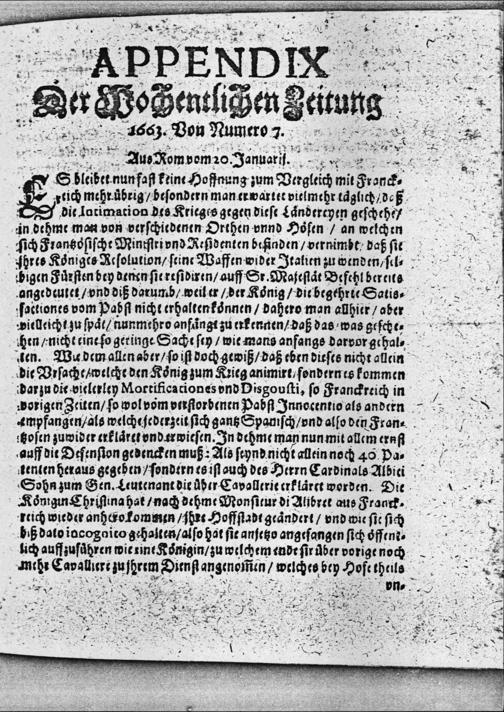 APPENDIX
Der Wochentlichen Zeitung
1663. Von Numero 7.
Aus Rom vom 20. Januarij.
ES bleibet nun fast keine Hoffnung zum Vergleich mit Franck-
reich mehr übrig / besondern man erwartet vielmehr täglich / daß
die Intimation des Krieges gegen diese Ländereyen geschehe /
in dehme man von verschiedenen Orthen vnnd Höfen / an welchen
sich Frantzösische Ministri vnd Residenten befinden / vernimbt / daß sie
jhres Königes Resolution / seine Waffen wider Italien zu wenden / sel-
bigen Fürsten bey denen sie residiren / auff Sr. Majestät Befehl bereits
angedeutet / vnd diß darumb / weil er / der König / die begehrte Satis-
factiones vom Pabst nicht erhalten können / dahero man allhier / aber
vielleicht zu spät / nunmehro anfängt zu erkennen / daß das / was gesche-
hen / nicht eine so geringe Sache sey / wie mans anfangs darvor gehal-
ten. Wie dem allen aber / so ist doch gewiß / daß eben dieses nicht allein
die Vrsache / welche den König zum Krieg animirt / sondern es kommen
darzu die vielerley Mortificationes vnd Disgousti, so Franckreich in
vorigen Zeiten / so wol vom verstorbenen Pabst Innocentio als andern
empfangen / als welche jederzeit sich gantz Spanisch / vnd also den Fran-
tzosen zuwider erkläret vnd erwiesen. In dehme man nun mit allem ernst
auff die Defension gedencken muß: Als seynd nicht allein noch 40 Pa-
tenten heraus gegeben / sondern es ist auch des Herrn Cardinals Albici
Sohn zum Gen. Leutenant die über Cavallerie erkläret worden. Die
Königin Christina hat / nach dehme Monsieur di Alibret aus Franck-
reich wieder anhero kommen / jhre Hoffstadt geändert / vnd wie sie sich
biß dato incognito gehalten / also hat sie anjetzo angefangen sich öffent-
lich auffzuführen wie eine Königin / zu welchem ende sie über vorige noch
mehr Cavalliere zu jhrem Dienst angenommen / welches bey Hofe theils
vn-